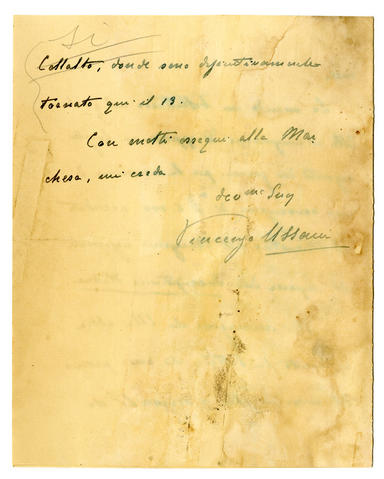 Si
Collalto, donde sono definitivamente
tornato qui il 13.
Con molti ossequi alla Mar
chesa, mi creda
Vincenzo Ussani